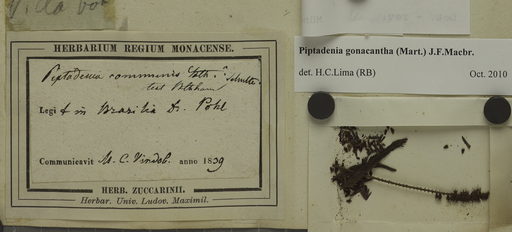 HERBARIUM REGIUM MONACENSE.
Piptadenia communis
Legit in Brasilia Dr. Pohl
Communicavit M. C. Vindob. anno 1839
HERB. ZUCCARINII.
Herbar. Univ. Ludov. Maximil.
Piptadenia gonacantha (Mart.) J.F.Macbr.
det. H.C.Lima (RB) Oct. 2010